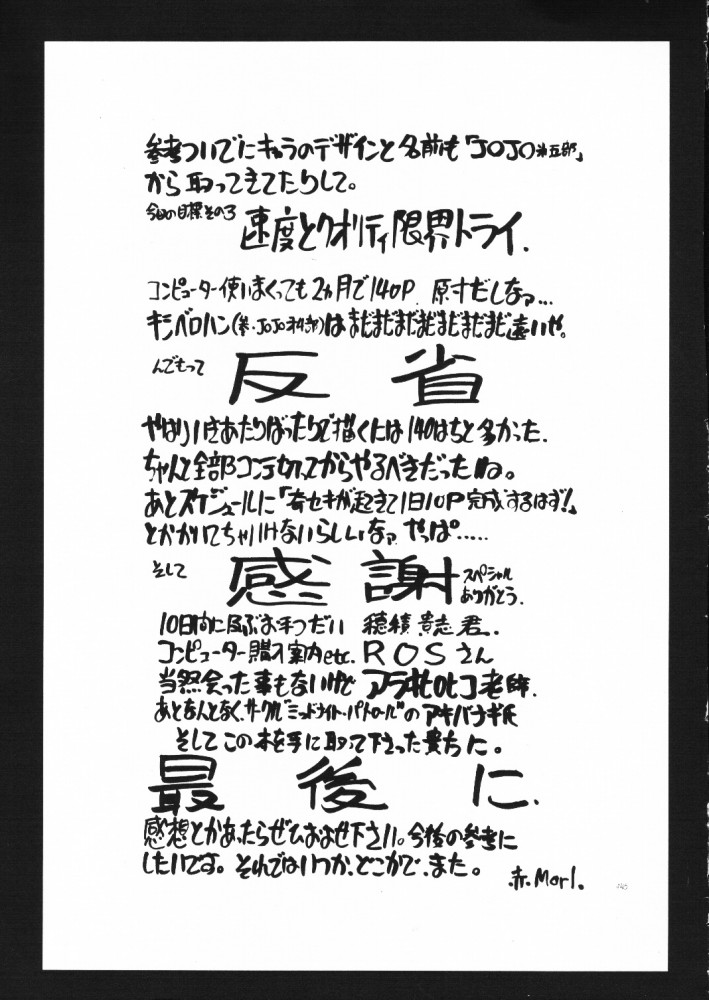 参考ついでにキャラのデザインと名前も「JOJO第五部」
から取ってきてたりして。
今回の目標その3
速度とクオリティ限界トライ.
コンピューター使いまくっても2ヵ月で140P. 原寸だしなァ…
キシベロハン(       )はまだまだまだまだまだまだまだ遠いや。
んでもって
反省
やはり行きあたりばったりで描くには140はちと多かった.
ちゃんと全部コンテ切ってからやるべきだったね。
あとスケジュールに「奇セキが起きて1日10P完成するはず!」
とか書いてちゃいけないらしいなァ やっぱ‥‥‥
そして
感謝
スペシャル
ありがとう.
10日間に及ぶお手つだい 穂積貴志君.
コンピューター購入案内etc. ROSさん
当然会った事もないけど アラキヒロヒコ老師.
あとなんとなく、サークル"ミッドナイト・パトロール"のアキバナギ氏
そしてこの本を手に取って下さった貴方に。
最後に.
感想とかあったらぜひおよせ下さい。今後の参考に
したいです。それではいつか、どこかで、また。
赤.Morl.
140